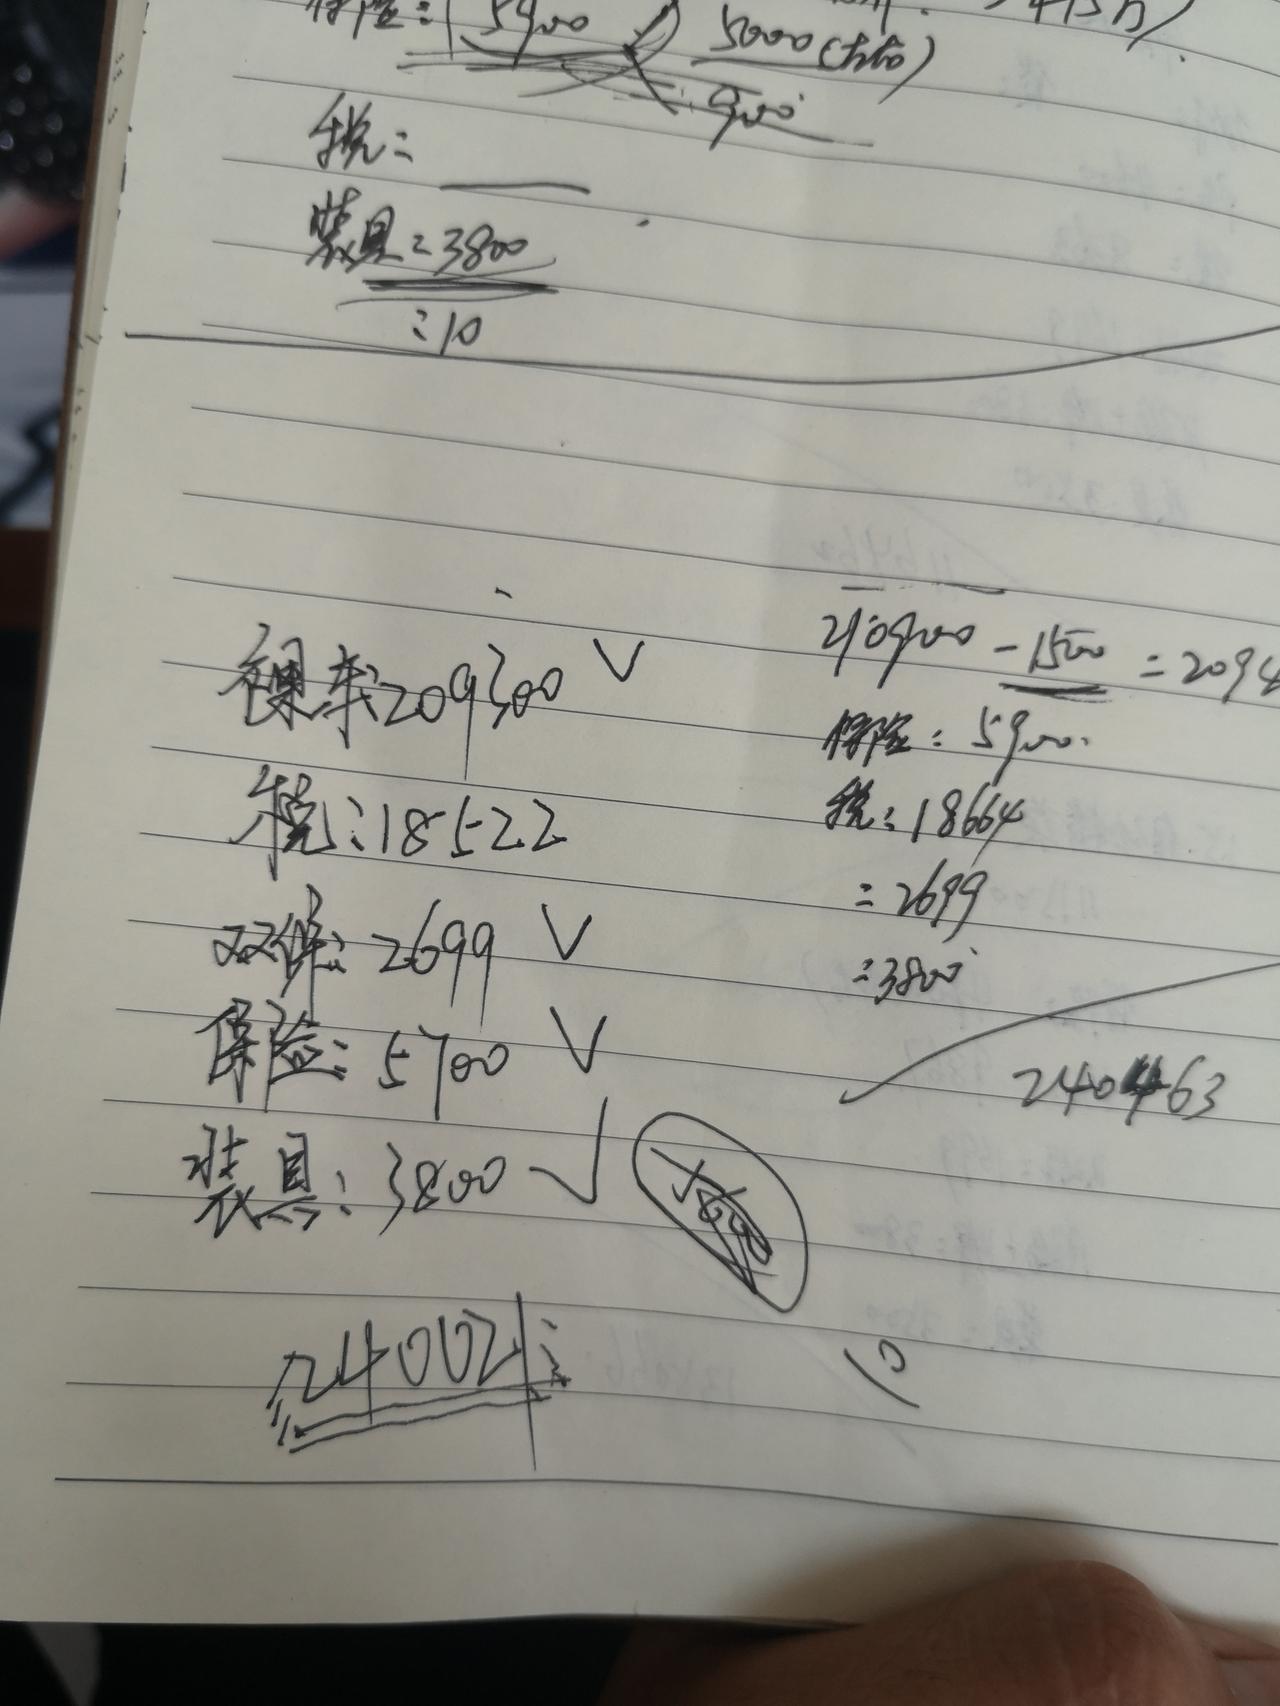 保险:(5900) 5000(太平)
900
税:
装具:3800
:10
裸车:209300 V
税:18522
双保:2699 V
保险:5700 V
装具:3800 √
240021
210900-1500=2094
保险:5900.
税:18664
=2699
=3800
240463